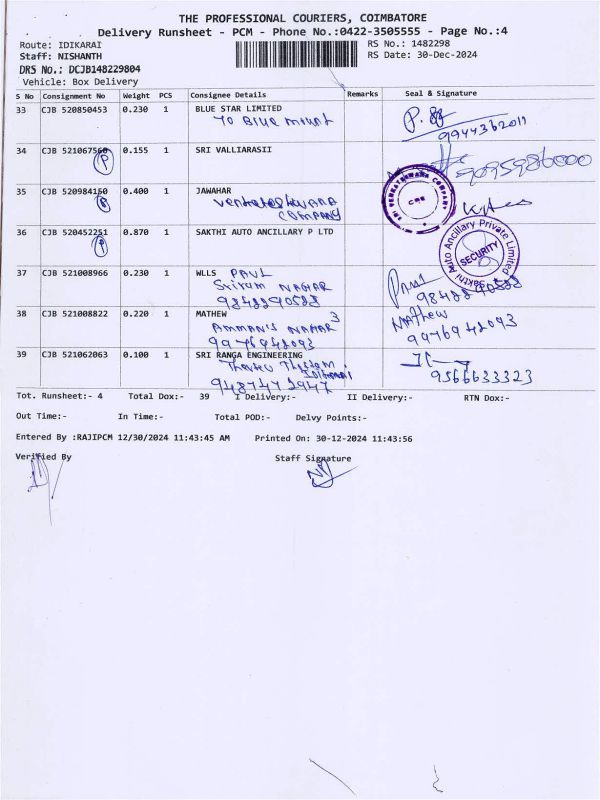 THE PROFESSIONAL COURIERS, COIMBATORE
Delivery Runsheet - PCM - Phone No.:0422-3505555 - Page No.:4
Route: IDIKARAI RS No.: 1482298
Staff: NISHANTH RS Date: 30-Dec-2024
DRS No.: DCJB148229804
Vehicle: Box Delivery
S No Consignment No Weight PCS Consignee Details Remarks Seal & Signature
33 CJB 520850453 0.230 1 BLUE STAR LIMITED
To Blue mount
9944362011
34 CJB 521067560 0.155 1 SRI VALLIARASII
P 9095986000
35 CJB 520984150 0.400 1 JAWAHAR
COMPANY
SRI VENKATESHWARA COMPANY
CBE
36 CJB 520452251 0.870 1 SAKTHI AUTO ANCILLARY P LTD
P
Sakthi Auto Ancillary Private Limited
SECURITY
37 CJB 521008966 0.230 1 WLLS PAUL
Sriram NAGAR Paul
9848890588 9848890588
38 CJB 521008822 0.220 1 MATHEW 3 Mathew
AMMAN'S NAGAR
9976942093 9976942093
39 CJB 521062063 0.100 1 SRI RANGA ENGINEERING
9487472947 9566633323
Tot. Runsheet:- 4 Total Dox:- 39 I Delivery:- II Delivery:- RTN Dox:-
Out Time:- In Time:- Total POD:- Delvy Points:-
Entered By :RAJIPCM 12/30/2024 11:43:45 AM Printed On: 30-12-2024 11:43:56
Verified By Staff Signature